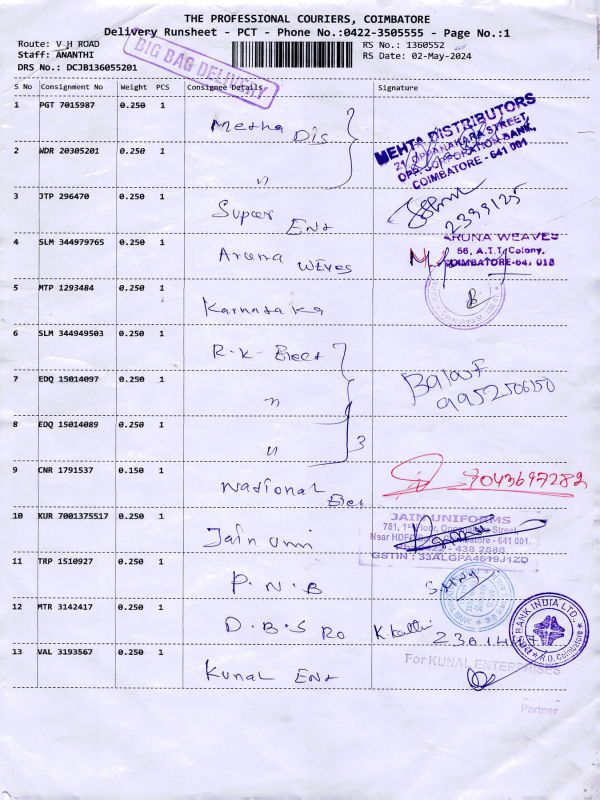 THE PROFESSIONAL COURIERS, COIMBATORE
Delivery Runsheet - PCT - Phone No.:0422-3505555 - Page No.:1
Route: V H ROAD
RS No.: 1360552
Staff: ANANTHI
RS Date: 02-May-2024
DRS No.: DCJB136055201
BIG BAG DELIVERY
S No Consignment No Weight PCS Consignee Details Signature
1 PGT 7015987 0.250 1 Metha Dis
MEHTA DISTRIBUTORS
21 OPPANAKARA STREET,
OPP. CORPORATION BANK,
COIMBATORE - 641 001
2 WDR 20305201 0.250 1 "
3 JTP 296470 0.250 1 Super Ent
4 SLM 344979765 0.250 1 Aruna Weves
ARUNA WEAVES
56, A.T.T. Colony,
COIMBATORE-641 018
5 MTP 1293484 0.250 1 Karnataka
6 SLM 344949503 0.250 1 R.K- Elect
7 EDQ 15014097 0.250 1 "
Balaji
9952506150
8 EDQ 15014089 0.250 1 " 3
9 CNR 1791537 0.150 1 National Elec
9043697282
10 KUR 7001375517 0.250 1 Jain Umi
JAIN UNIFORMS
781, 1st Floor, Oppanakara Street,
Near HDFC Coimbatore - 641 001.
GSTIN : 33ALGPA4619J1ZD
11 TRP 1510927 0.250 1 P.N.B
12 MTR 3142417 0.250 1 D.B.S RO
BANK INDIA LTD
R.O. Coimbatore
13 VAL 3193567 0.250 1 Kunal Ent
For KUNAL ENTERPRISES
Partner